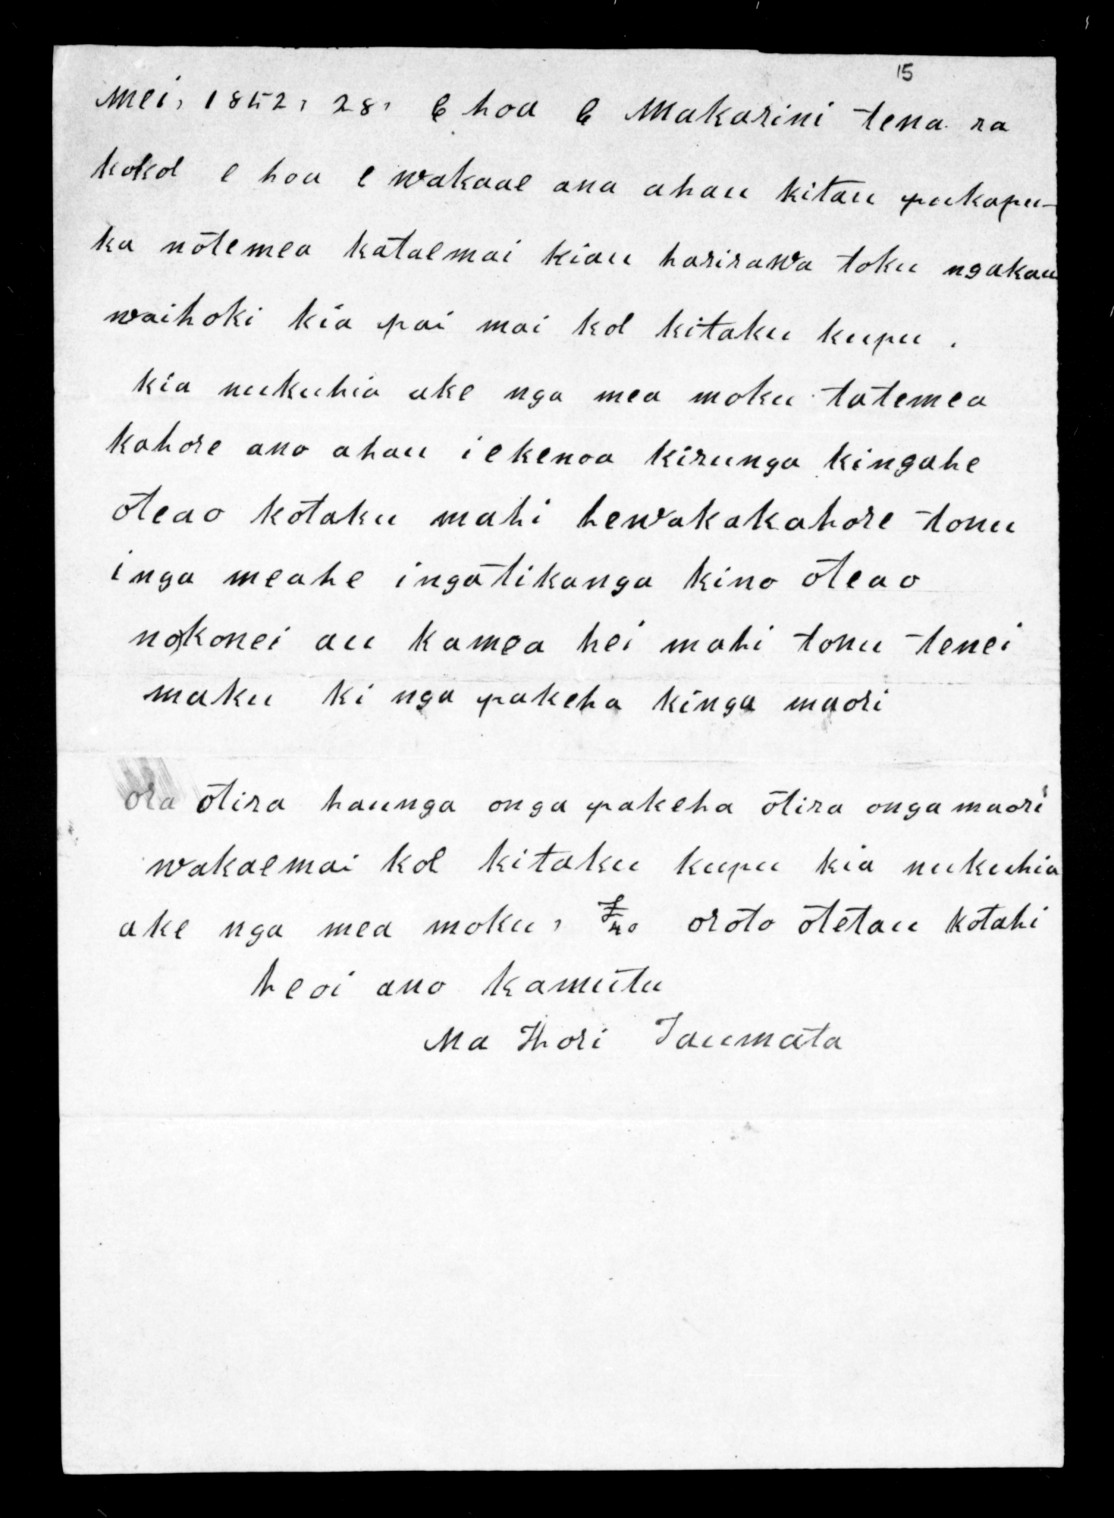 15
Mei, 1852, 28, E hoa E Makarini tena ra
kokoe e hoa e wakaae ana ahau kitau pukapu-
ka nōtemea kataemai kiau harirawa toku ngakau
waihoki kia pai mai koe kitaku kupu.
kia nukuhia ake nga mea moku tatemea
kahore ano ahau iekenoa kirunga kingahe
ōteao kōtaku mahi hewakakahore tonu
inga meahe ingatikanga kino ōteao
nokonei au kamea hei mahi tonu tenei
maku ki nga pakeha kinga maori
ora ōtira haunga onga pakeha ōtira ongamaori
wakaemai koe kitaku kupu kia nukuhia
ake nga mea moku, oroto ōtetau kotahi
heoi ano kamutu
Na Hori Taumata